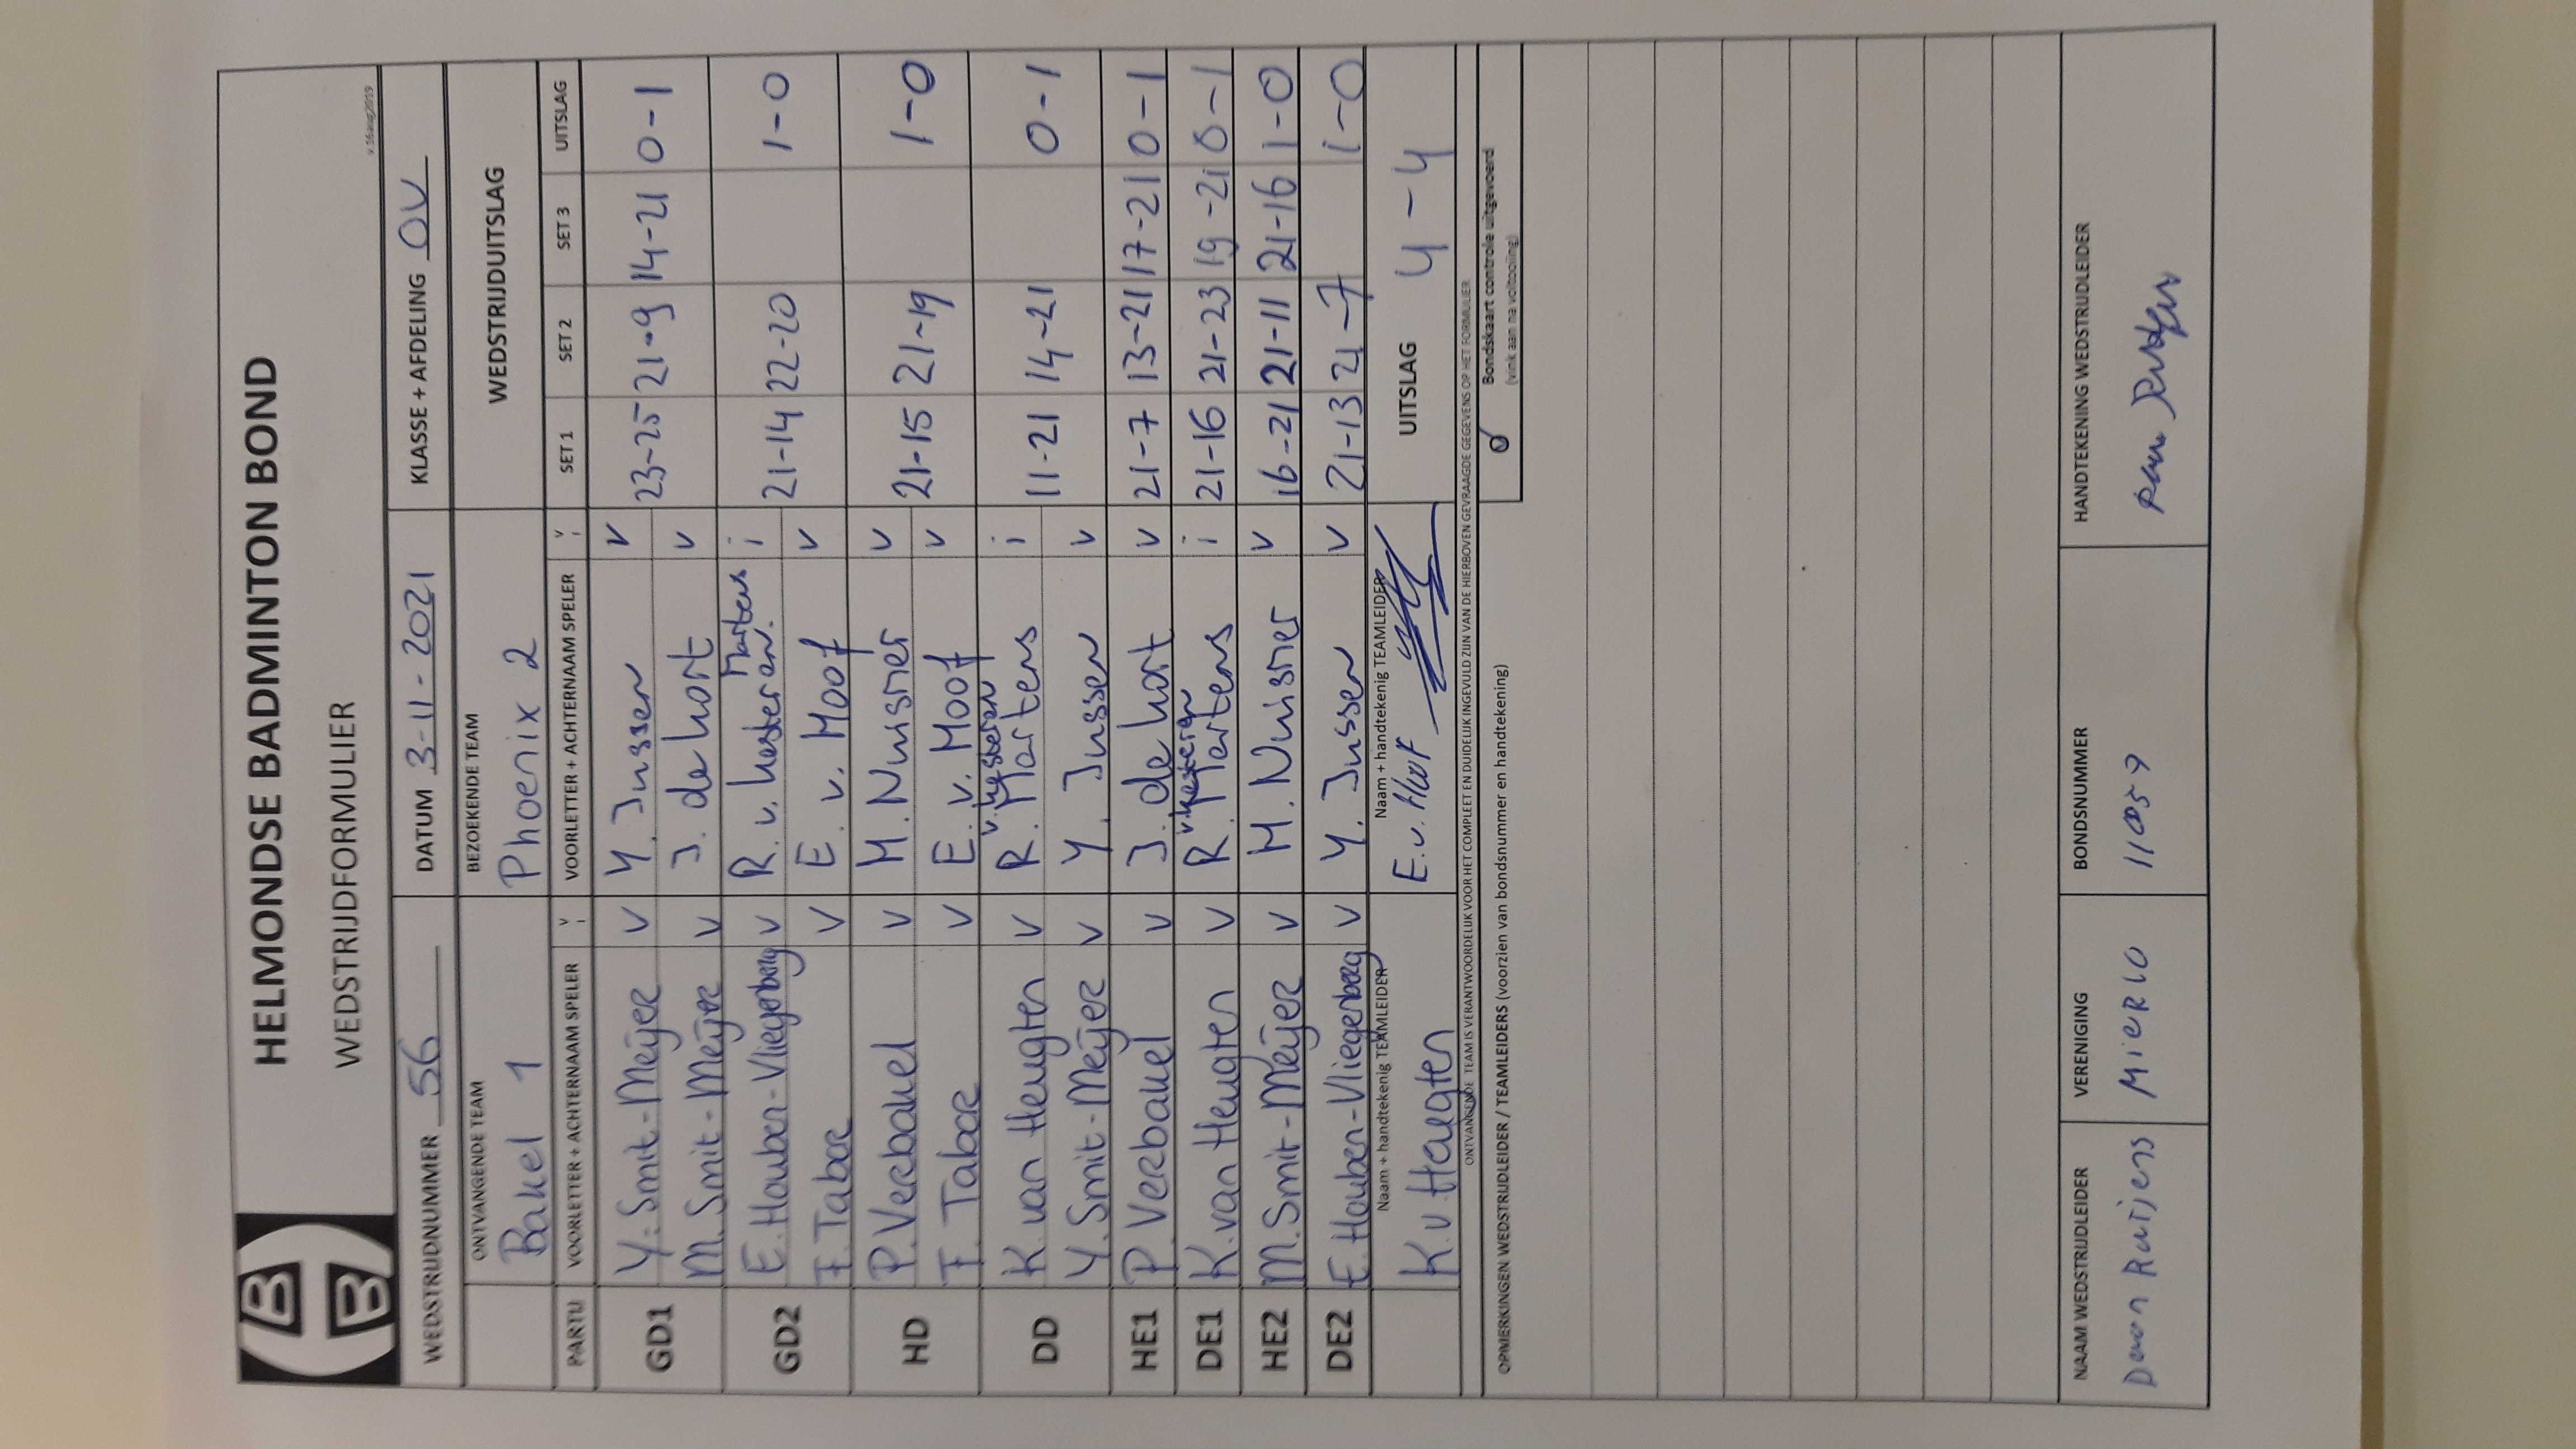 HELMONDSE BADMINTON BOND
WEDSTRIJDFORMULIER
v.16aug2019
WEDSTRIJDNUMMER 56 DATUM 3-11-2021 KLASSE + AFDELING OV
ONTVANGENDE TEAM BEZOEKENDE TEAM WEDSTRIJDUITSLAG
Bakel 1 Phoenix 2
PARTIJ VOORLETTER + ACHTERNAAM SPELER V i VOORLETTER + ACHTERNAAM SPELER V i SET 1 SET 2 SET 3 UITSLAG
GD1 Y. Smit-Meijer V Y. Jussen V 23-25 21-9 14-21 0-1
M. Smit-Meijer V J. de hort V
GD2 E. Houben-Vliegenberg V R. v. hesteren. Martens i 21-14 22-20 1-0
F. Tabor V E. v. Hoof V
HD P. Verbakel V M. Nuisner V 21-15 21-19 1-0
F. Tabor V E. v. Hoof V
DD K. van Heugten V R. v. hesteren Martens i 11-21 14-21 0-1
Y. Smit-Meijer V Y. Jussen V
HE1 P. Verbakel V J. de hort V 21-7 13-21 17-21 0-1
DE1 K. van Heugten V R. v. hesteren Martens i 21-16 21-23 19-21 0-1
HE2 M. Smit-Meijer V M. Nuisner V 16-21 21-11 21-16 1-0
DE2 E. Houben-Vliegenberg V Y. Jussen V 21-13 21-7 1-0
Naam + handtekenig TEAMLEIDER Naam + handtekenig TEAMLEIDER UITSLAG 4-4
K. v Heugten E. v. Hoof
ONTVANGENDE TEAM IS VERANTWOORDELIJK VOOR HET COMPLEET EN DUIDELIJK INGEVULD ZIJN VAN DE HIERBOVEN GEVRAAGDE GEGEVENS OP HET FORMULIER
OPMERKINGEN WEDSTRIJDLEIDER / TEAMLEIDERS (voorzien van bondsnummer en handtekening) Bondskaart controle uitgevoerd
(vink aan na voltooiing)
NAAM WEDSTRIJDLEIDER VERENIGING BONDSNUMMER HANDTEKENING WEDSTRIJDLEIDER
MIERLO